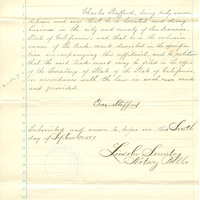 Charles Stafford, being duly sworn
deposes and says that he is located and doing
business in the city and county of San Francisco
State of California, and that he is the exclusive
owner of the trade mark described in the specifica-
tion accompanying this affidavit, and he petitions
that the said trade mark may be filed in the office
of the Secretary of State of the State of California,
in accordance with the law in such case made
and provided.
Chas Stafford
Subscribed and sworn to before me this
day of September 1879
Notary Public